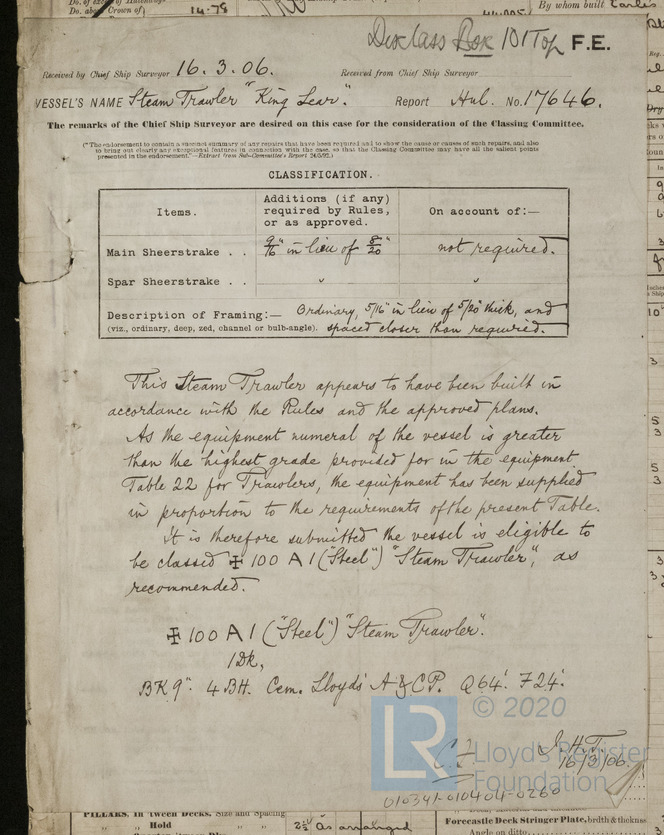 14-78
By whom built Earles
Do. above Crown of
Disclass Box 101 Top F.E.
Received by Chief Ship Surveyor 16.3.06. Received from Chief Ship Surveyor
VESSEL'S NAME Steam Trawler "King Lear". Report Hul. No. 17646.
The remarks of the Chief Ship Surveyor are desired on this case for the consideration of the Classing Committee.
("The endorsement to contain a succinct summary of any repairs that have been required and to show the cause or causes of such repairs, and also
to bring out clearly any exceptional features in connection with the case, so that the Classing Committee may have all the salient points
presented in the endorsement."—Extract from Sub-Committee's Report 24/3/92.)
CLASSIFICATION.
Items. Additions (if any) required by Rules, or as approved. On account of:—
Main Sheerstrake . . 9/16" in lieu of 8/20" not required.
Spar Sheerstrake . . " "
Description of Framing:— Ordinary, 5/16" in lieu of 5/20" thick, and
(viz., ordinary, deep, zed, channel or bulb-angle). spaced closer than required.
This Steam Trawler appears to have been built in
accordance with the Rules and the approved plans.
As the equipment numeral of the vessel is greater
than the highest grade provided for in the equipment
Table 22 for Trawlers, the equipment has been supplied
in proportion to the requirements of the present Table.
It is therefore submitted the vessel is eligible to
be classed ✠ 100 A 1 ("Steel") "Steam Trawler", as
recommended.
✠ 100 A 1 ("Steel") "Steam Trawler".
1Dk,
BK 9". 4 BH. Cem. Lloyds A & CP. Q 64'. F 24'.
© 2020
LR Lloyd's Register
Foundation
J.H.T.
16/3/06.
010341-010404-0260
PILLARS, In Tween Decks, Size and Spacing
" " Hold " " 2½ As arranged
Forecastle Deck Stringer Plate, brdth & thickns
Angle on ditto